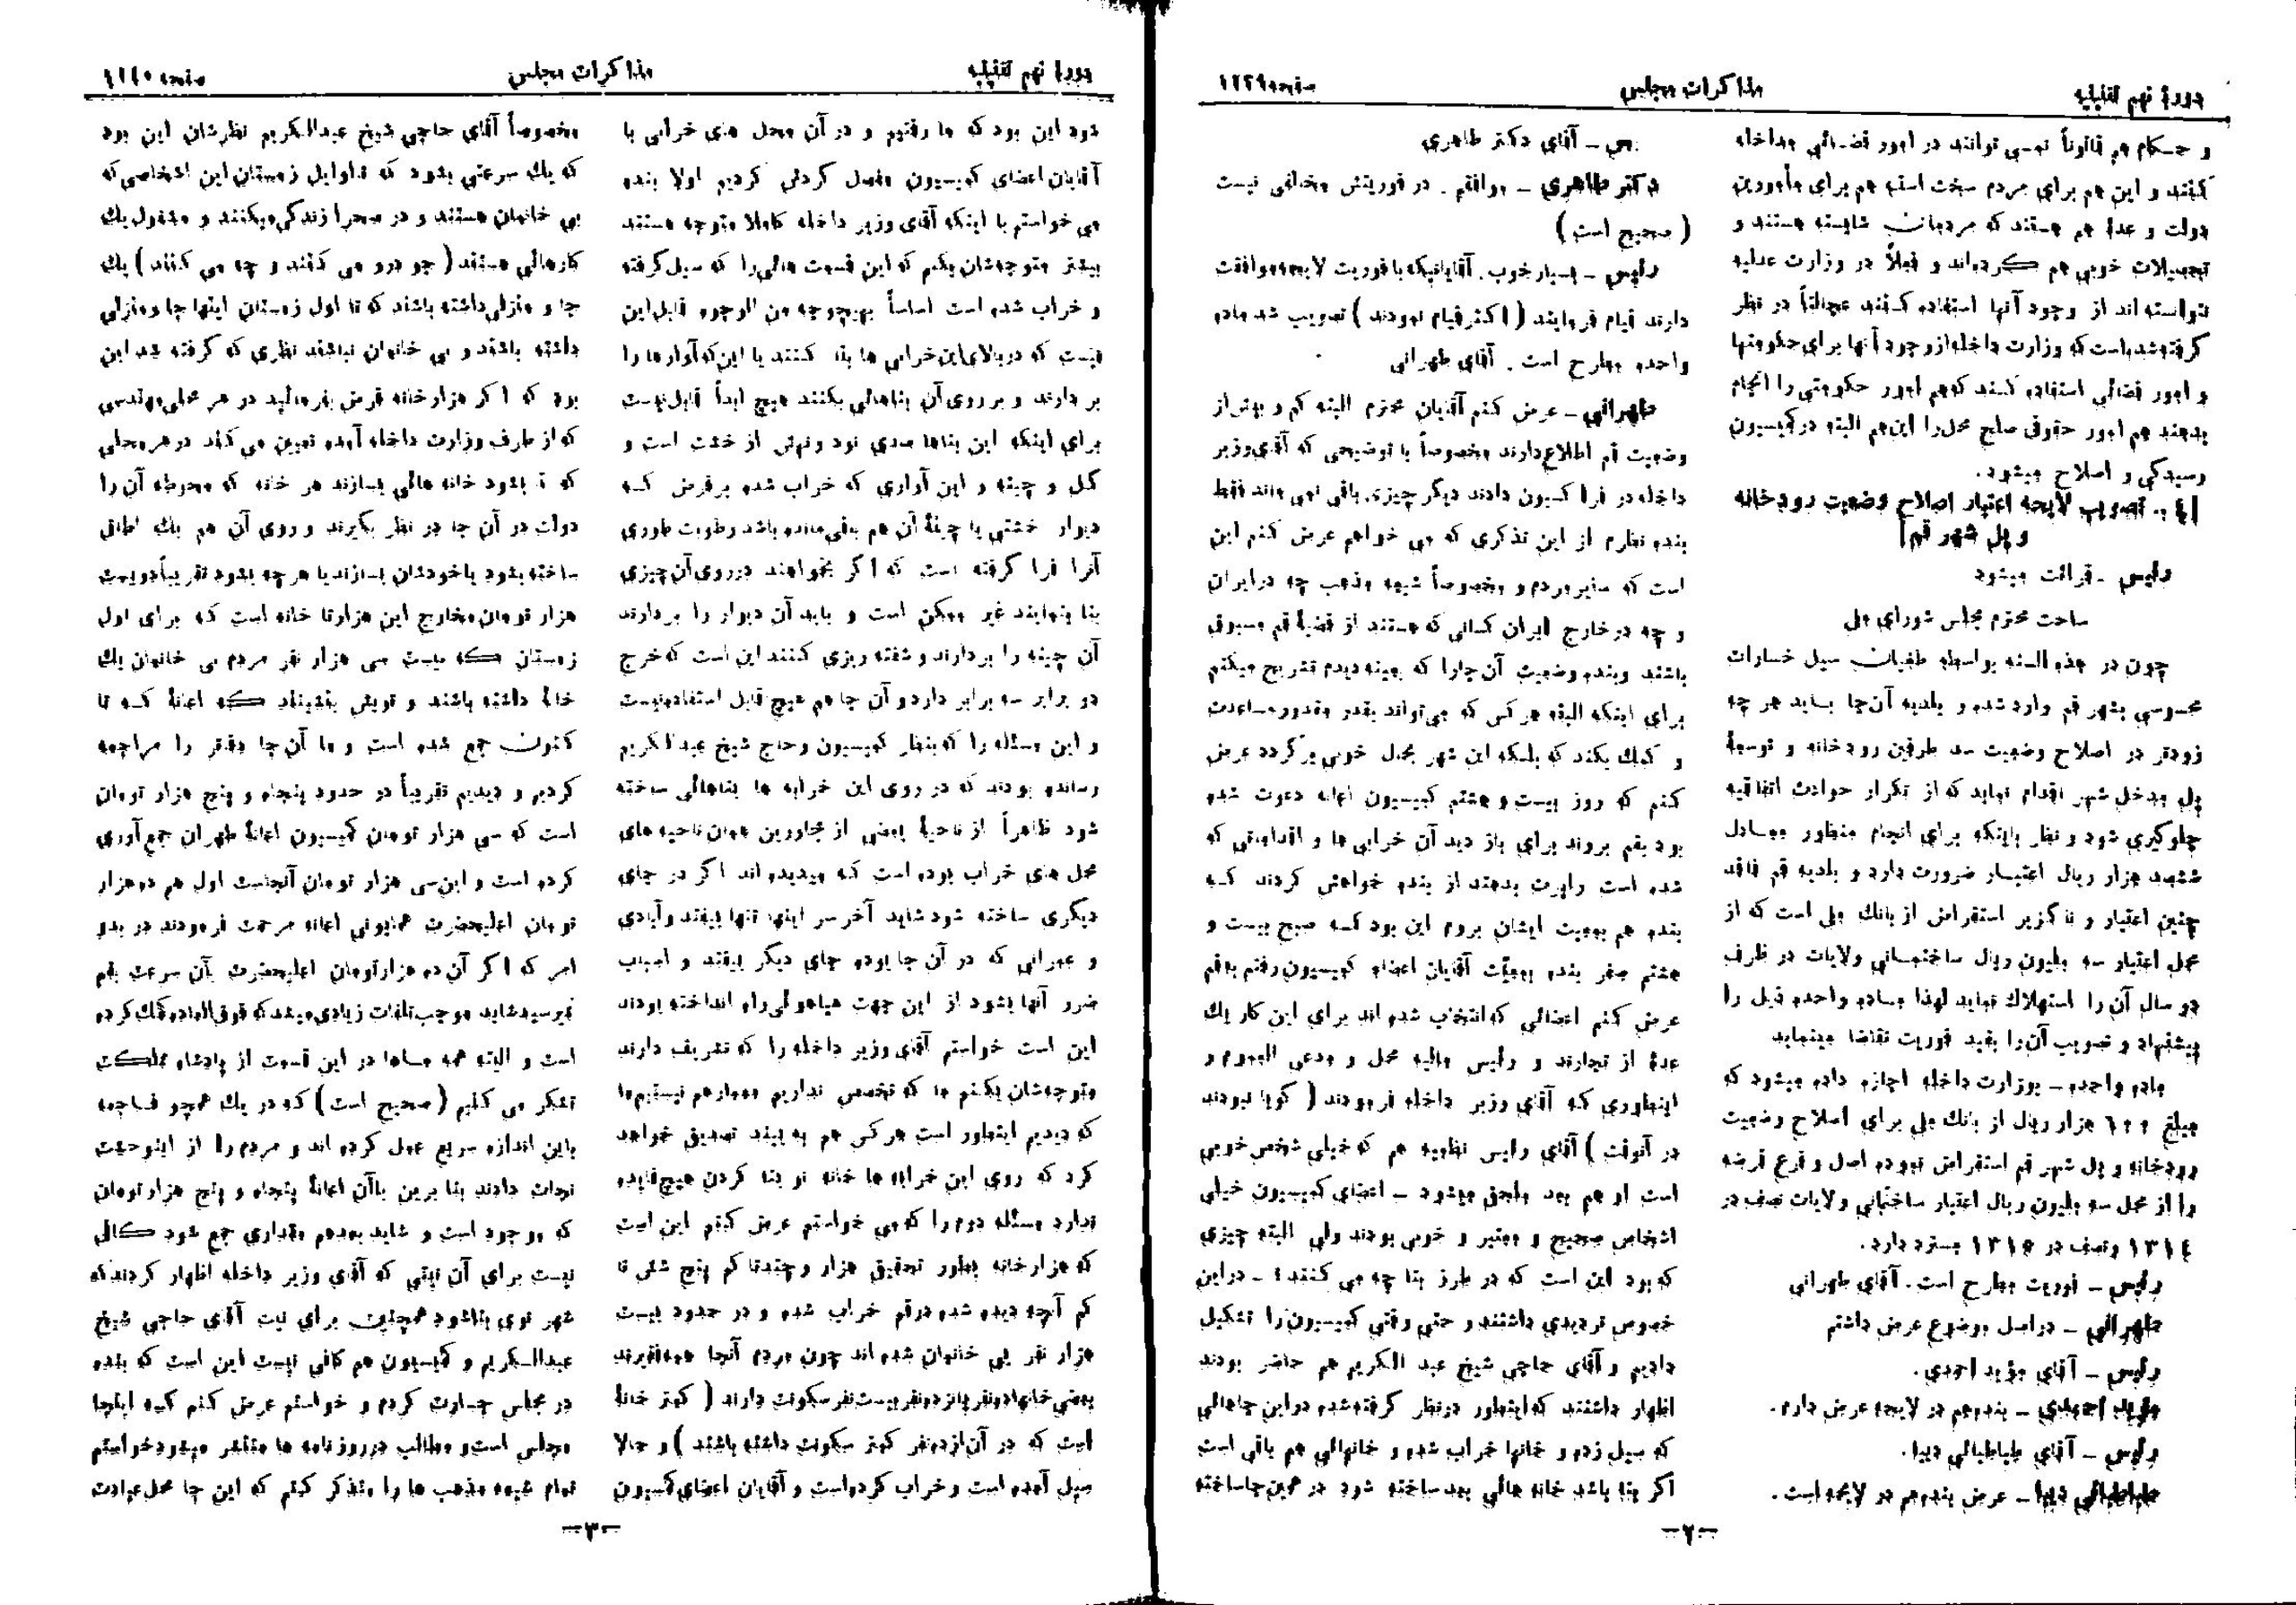 دورۀ نهم تقنینیه
مذاکرات مجلس
صفحه ۱۲۳۹
و حکام هم قانوناً نمی توانند در امور قضائی مداخله
کنند و این هم برای مردم سخت است هم برای مأمورین
دولت و عدۀ هم هستند که مردمان شایسته هستند و
تحصیلات خوبی هم کرده‌اند و فعلاً در وزارت عدلیه
نتوانسته اند از وجود آنها استفاده کنند عجالتاً در نظر
گرفته شده است که وزارت داخله از وجود آنها برای حکومتها
و امور قضائی استفاده کنند که هم امور حکومتی را انجام
بدهند هم امور حقوقی صلح محل را این هم البته در کمیسیون
رسیدگی و اصلاح میشود.
[۴ - تصویب لایحه اعتبار اصلاح وضعیت رودخانه
و پل شهر قم]
رئیس - قرائت میشود
ساحت محترم مجلس شورای ملی
چون در هذه السنه بواسطه طغیان سیل خسارات
محسوسی بشهر قم وارد شده و بلدیه آن جا باید هر چه
زودتر در اصلاح وضعیت سد طرفین رودخانه و توسعۀ
پل مدخل شهر اقدام نماید که از تکرار حوادث اتفاقیه
جلوگیری شود و نظر باینکه برای انجام منظور معادل
ششصد هزار ریال اعتبار ضرورت دارد و بلدیه قم فاقد
چنین اعتبار و ناگزیر استقراض از بانک ملی است که از
محل اعتبار سه ملیون ریال ساختمانی ولایات در ظرف
دو سال آن را استهلاک نماید لهذا ماده واحده ذیل را
پیشنهاد و تصویب آن را بقید فوریت تقاضا مینماید
ماده واحده - بوزارت داخله اجازه داده میشود که
مبلغ ۶۰۰ هزار ریال از بانک ملی برای اصلاح وضعیت
رودخانه و پل شهر قم استقراض نموده اصل و فرع قرضه
را از محل سه ملیون ریال اعتبار ساختمانی ولایات نصف در
۱۳۱۴ ونصف در ۱۳۱۵ مسترد دارد.
رئیس - فوریت مطرح است. آقای طهرانی
طهرانی - در اصل موضوع عرض داشتم
رئیس - آقای مؤید احمدی.
مؤید احمدی - بنده هم در لایحه عرض دارم.
رئیس - آقای طباطبائی دیبا.
طباطبائی دیبا - عرض بنده هم در لایحه است.
- آقای دکتر طاهری
دکتر طاهری - موافقم. در فوریتش مخالفی نیست
(صحیح است)
رئیس - بسیار خوب. آقایانیکه با فوریت لایحه موافقت
دارند قیام فرمایند (اکثر قیام نمودند) تصویب شد ماده
واحده مطرح است. آقای طهرانی
طهرانی - عرض کنم آقایان محترم البته کم و بیش از
وضعیت قم اطلاع دارند مخصوصاً با توضیحی که آقای وزیر
داخله در فراکسیون دادند دیگر چیزی باقی نمی ماند فقط
بنده نظرم از این تذکری که می خواهم عرض کنم این
است که سایر مردم و مخصوصاً شیعه مذهب چه در ایران
و چه در خارج ایران کسانی که هستند از قضیۀ قم مسبوق
باشند وبنده وضعیت آن جا را که بعینه دیدم تشریح میکنم
برای اینکه البته هر کس که می تواند بقدر مقدور مساعدت
و کمک بکند که بلکه این شهر بحال خوبی برگردد عرض
کنم که روز بیست و هشتم کمیسیون اعانه دعوت شده
بود بقم بروند برای باز دید آن خرابی ها و اقداماتی که
شده است راپرت بدهند از بنده خواهش کردند که
بنده هم بمعیت ایشان بروم این بود که صبح بیست و
هشتم صفر بنده بمعیت آقایان اعضاء کمیسیون رفتم بقم
عرض کنم اعضائی که انتخاب شده اند برای این کار یک
عدۀ از تجارند و رئیس مالیه محل و مدعی العموم و
اینطوری که آقای وزیر داخله فرمودند (گویا نبودند
در آنوقت) آقای رئیس نظمیه هم که خیلی شخص خوبی
است او هم بعد ملحق میشود - اعضای کمیسیون خیلی
اشخاص صحیح و معتبر و خوبی بودند ولی البته چیزی
که بود این است که در طرز بنا چه می کنند؟ - در این
خصوص تردیدی داشتند و حتی وقتی کمیسیون را تشکیل
دادیم و آقای حاجی شیخ عبد الکریم هم حاضر بودند
اظهار داشتند که اینطور در نظر گرفته شده در این جاهائی
که سیل زده و خانها خراب شده و خانهائی هم باقی است
اگر بنا باشد خانه هائی بعد ساخته شود در همین جا ساخته
-۲-
دورۀ نهم تقنینیه
مذاکرات مجلس
صفحه ۱۲۴۰
شود این بود که ما رفتیم و در آن محل های خرابی با
آقایان اعضای کمیسیون مفصل گردش کردیم اولا بنده
می خواستم با اینکه آقای وزیر داخله کاملا متوجه هستند
بیشتر متوجهشان بکنم که این قسمت هائی را که سیل گرفته
و خراب شده است اساساً بهیچوجه من الوجوه قابل این
نیست که در بالای این خرابی ها بنا کنند یا این که آوارها را
بر دارند و بر روی آن بناهائی بکنند هیچ ابداً قابل نیست
برای اینکه این بناها صدی نود ونهش از خشت است و
گل و چینه و این آواری که خراب شده بر فرض که
دیوار خشتی یا چینۀ آن هم باقی مانده باشد رطوبت طوری
آنرا فرا گرفته است که اگر بخواهند در روی آن چیزی
بنا بنمایند غیر ممکن است و باید آن دیوار را بردارند
آن چینه را بردارند و شفته ریزی کنند این است که خرج
دو برابر سه برابر دارد و آن جا هم هیچ قابل استفاده نیست
و این مسئله را که بنظر کمیسیون و حاج شیخ عبدالکریم
رسانده بودند که در روی این خرابه ها بناهائی ساخته
شود ظاهراً از ناحیۀ بعضی از مجاورین همان ناحیه های
محل های خراب بوده است که میدیده اند اگر در جای
دیگری ساخته شود شاید آخر سر اینها تنها بیفتند و آبادی
و عمرانی که در آن جا بوده جای دیگر بیفتد و اسباب
ضرر آنها بشود از این جهت هیاهوئی راه انداخته بودند
این است خواستم آقای وزیر داخله را که تشریف دارند
متوجهشان بکنم ما که تخصص نداریم معمار هم نیستیم ما
که دیدیم اینطور است هر کس هم به بیند تصدیق خواهد
کرد که روی این خرابه ها خانه نو بنا کردن هیچ فایده
ندارد مسئله دوم را که می خواستم عرض کنم این است
که هزار خانه بطور تحقیق هزار و چند تا کم پنج شش تا
کم آنچه دیده شده در قم خراب شده و در حدود بیست
هزار نفر بی خانمان شده اند چون مردم آنجا همه فقیرند
بعضی خانها ده نفر پانزده نفر بیست نفر سکونت دارند (کمتر خانۀ
است که در آن از ده نفر کمتر سکونت داشته باشند) و حالا
سیل آمده است و خراب کرده است و آقایان اعضای کمیسیون
مخصوصاً آقای حاجی شیخ عبدالکریم نظرشان این بود
که یک سرعتی بشود که تا اوایل زمستان این اشخاصی که
بی خانمان هستند و در صحرا زندگی میکنند و مشغول یک
کارهائی هستند (جو درو می کنند و چه می کنند) یک
جا و منزلی داشته باشند که تا اول زمستان اینها جا و منزلی
داشته باشند و بی خانمان نباشند نظری که گرفته شد این
بود که اگر هزار خانه فرض بفرمائید در هر محلی مهندسی
که از طرف وزارت داخله آمده تعیین می کند در هر محلی
که بشود خانه هائی بسازند هر خانه که محوطه آن را
دولت در آن جا در نظر بگیرند و روی آن هم یک اطاقی
ساخته بشود یا خودشان بسازند یا هر چه بشود تقریباً دویست
هزار تومان مخارج این هزارتا خانه است که برای اول
زمستان که بیست سی هزار نفر مردم بی خانمان یک
خانۀ داشته باشند و تویش بنشینند که اعانۀ که تا
کنون جمع شده است و ما آن جا دفتر را مراجعه
کردیم و دیدیم تقریباً در حدود پنجاه و پنج هزار تومان
است که سی هزار تومان کمیسیون اعانۀ طهران جمع آوری
کرده است و این سی هزار تومان آنجاست اول هم ده هزار
تومان اعلیحضرت همایونی اعانه مرحمت فرمودند در بدو
امر که اگر آن ده هزار تومان اعلیحضرت بآن سرعت بقم
نمیرسید شاید موجب تلفات زیادی میشد که فوق العاده کمک کرده
است و البته همه ماها در این قسمت از پادشاه مملکت
تشکر می کنیم (صحیح است) که در یک همچو فاجعه
باین اندازه سریع عمل کرده اند و مردم را از اینوحشت
نجات دادند بنا برین با آن اعانۀ پنجاه و پنج هزار تومان
که موجود است و شاید بعد هم مقداری جمع شود کافی
نیست برای آن نیتی که آقای وزیر داخله اظهار کردند که
شهر نوی بنا شود همچنین برای نیت آقای حاجی شیخ
عبدالکریم و کمیسیون هم کافی نیست این است که بنده
در مجلس جسارت کردم و خواستم عرض کنم که اینجا
مجلس است و مطالب در روزنامه ها منتشر میشود خواستم
تمام شیعه مذهب ها را متذکر کنم که این جا محل عبادت
-۳-